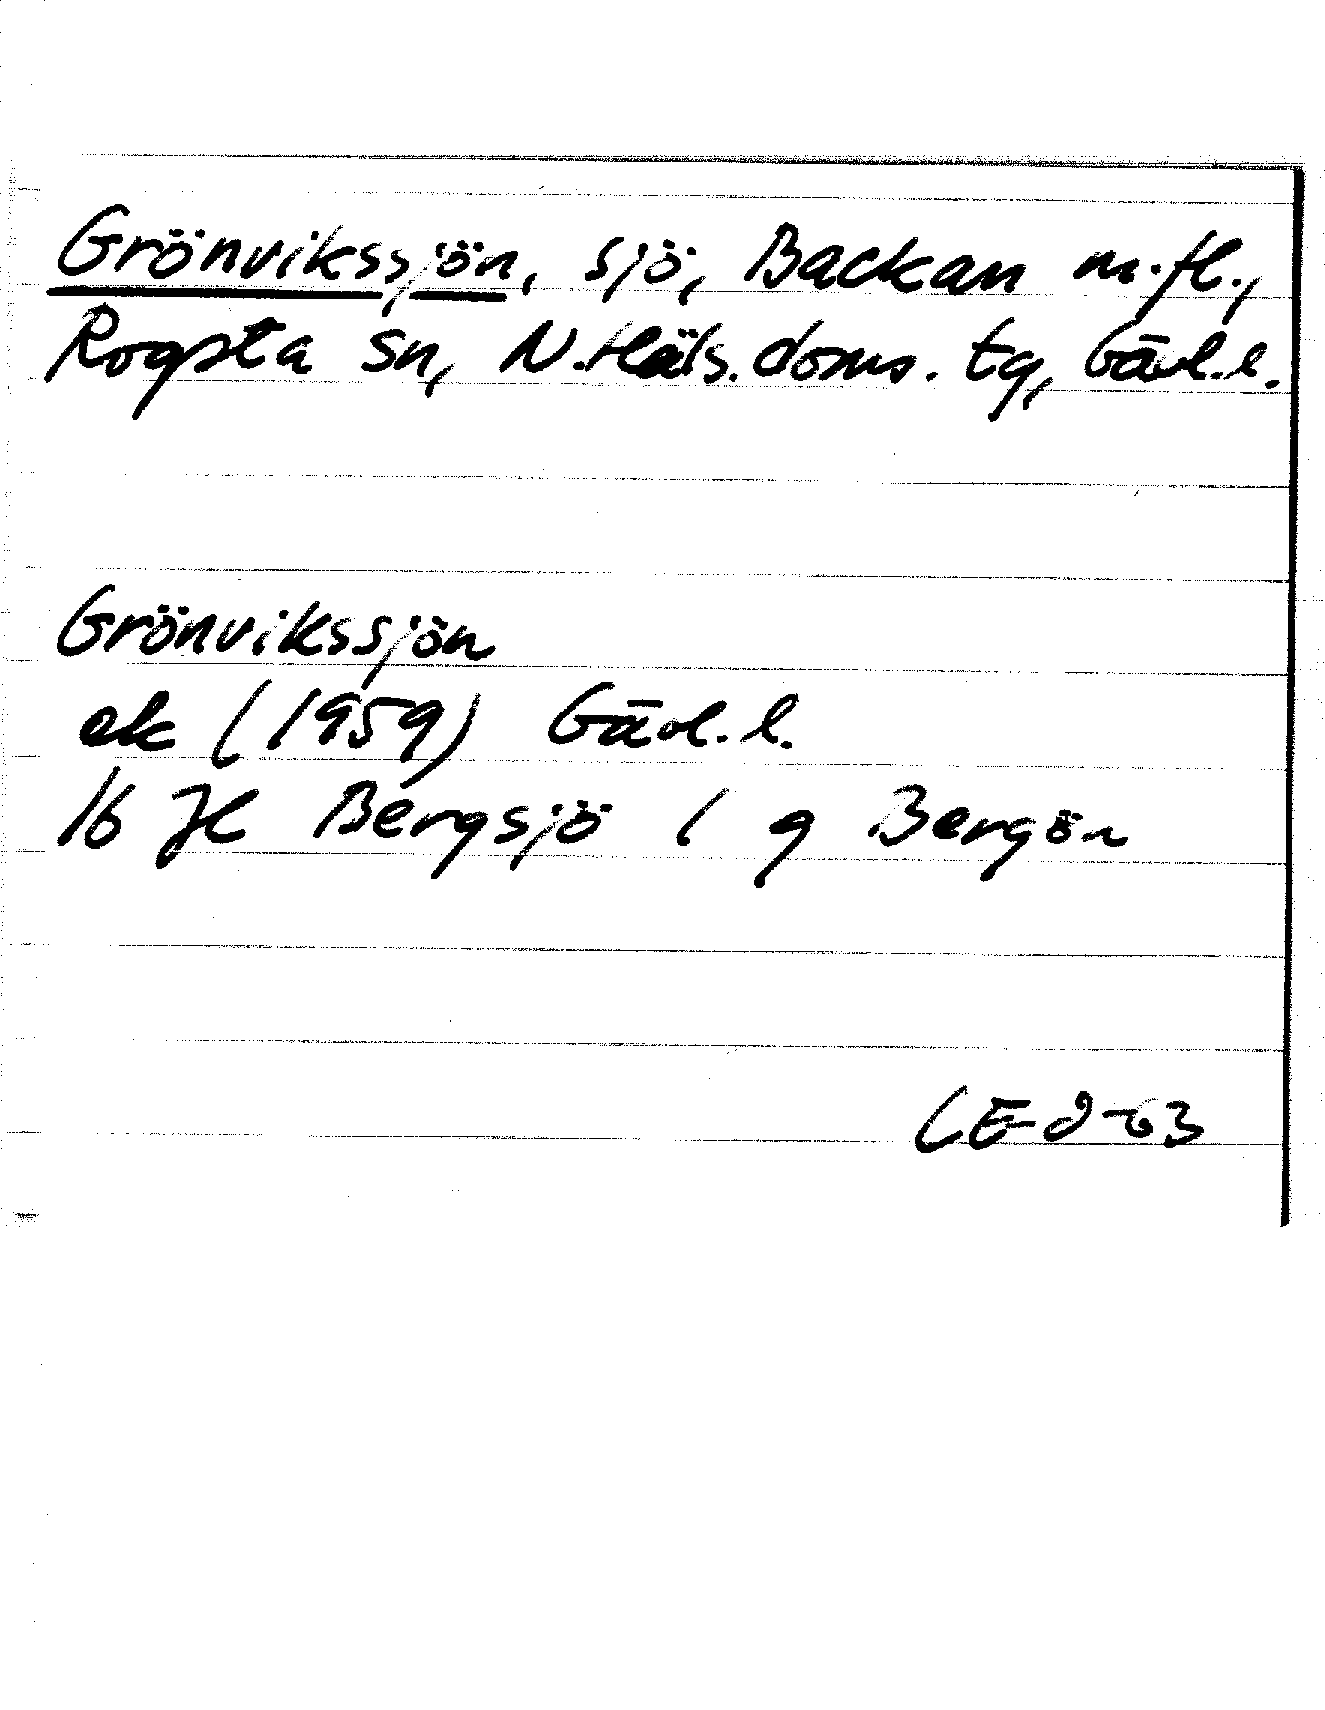 Grönvikssjön, sjö, Backan m.fl.,
Rogsta sn, N.Häls.doms.tg, Gävl.l.
Grönvikssjön
ek (1959) Gävl.l.
16 H Bergsjö 1 g Bergön
CE-8-63